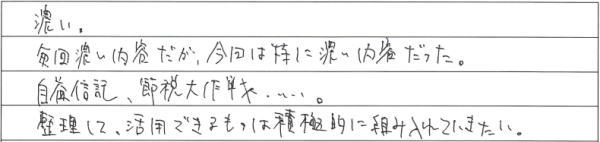 濃い。
毎回濃い内容だが、今回は特に濃い内容だった。
自益信託、節税大作戦……。
整理して、活用できるものは積極的に組み入れていきたい。